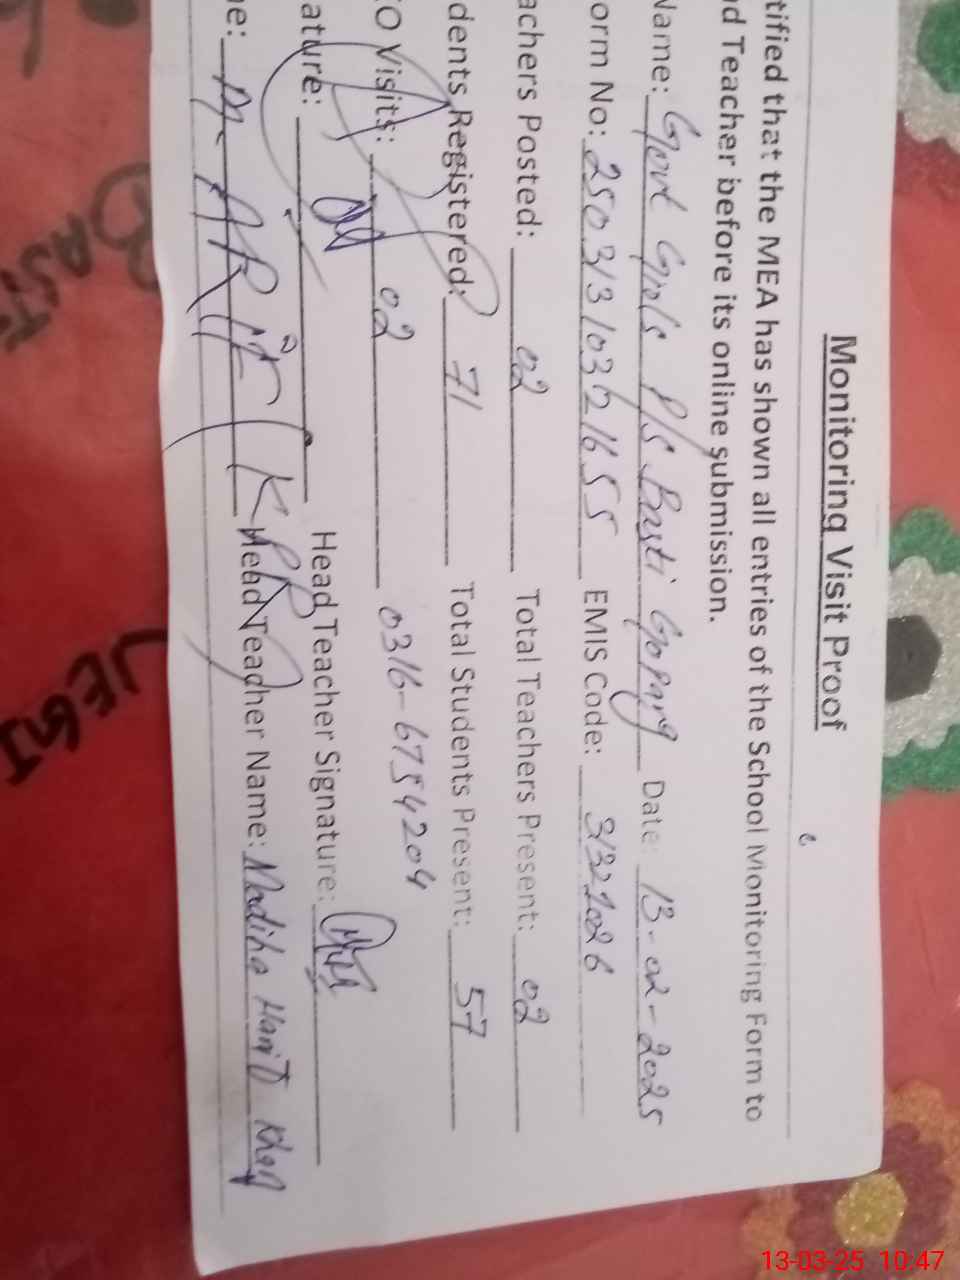 Monitoring Visit Proof
tified that the MEA has shown all entries of the School Monitoring Form to
d Teacher before its online submission.
Name: Govt Girls P/S Basti Gopang Date: 13-02-2025
orm No: 25031310321655 EMIS Code: 31321026
achers Posted: 02 Total Teachers Present: 02
dents Registered: 71 Total Students Present: 57
O Visits: 02 0316-6754204
ature: Head Teacher Signature:
e: M. ARif Head Teacher Name: Madiha Hanif Khan
BASTI
13-03-25 10:47